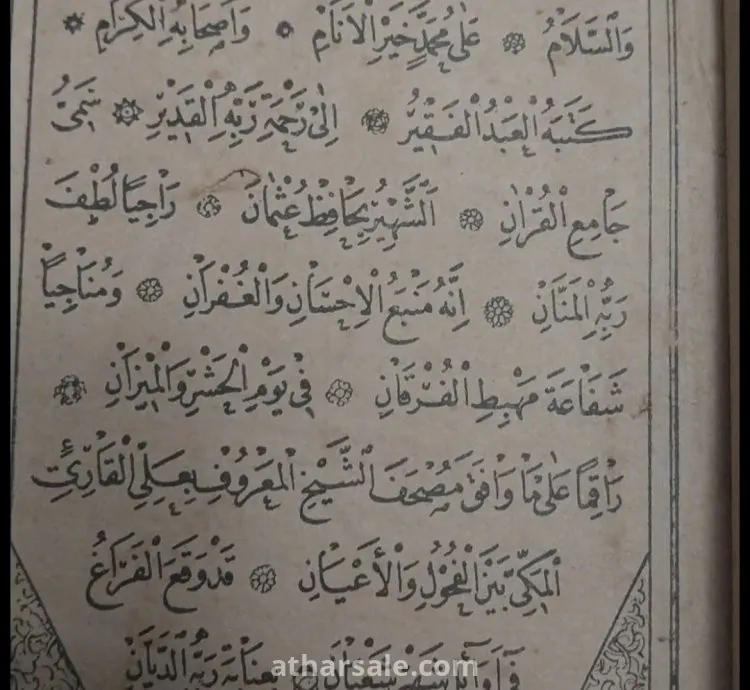 وَالسَّلَامُ ۞ عَلٰى مُحَمَّدٍ خَيْرِ الْاَنَامِ ۞ وَاَصْحَابِهِ الْكِرَامِ ۞
كَتَبَهُ الْعَبْدُ الْفَقِيْرُ ۞ اِلٰى رَحْمَةِ رَبِّهِ الْقَدِيْرِ ۞ سَمِىُّ
جَامِعِ الْقُرْاٰنِ ۞ اَلشَّهِيْرُ بِحَافِظْ عُثْمَانَ ۞ رَاجِيًا لُطْفَ
رَبِّهِ الْمَنَّانِ ۞ اِنَّهُ مَنْبَعُ الْاِحْسَانِ وَالْغُفْرَانِ ۞ وَمُنَاجِيًا
شَفَاعَةَ مَهْبِطِ الْفُرْقَانِ ۞ فِى يَوْمِ الْحَشْرِ وَالْمِيْزَانِ ۞
رَاقِمًا عَلٰى مَا وَافَقَ مُصْحَفَ الشَّيْخِ الْمَعْرُوفِ بِعَلِىِّ الْقَارِئِ
الْمَكِّىِّ بَيْنَ الْفُحُوْلِ وَالْاَعْيَانِ ۞ قَدْ وَقَعَ الْفَرَاغُ
فِى اَوَائِلِ شَهْرِ شَعْبَانَ ۞ بِعِنَايَةِ رَبِّهِ الدَّيَّانِ
atharsale.com